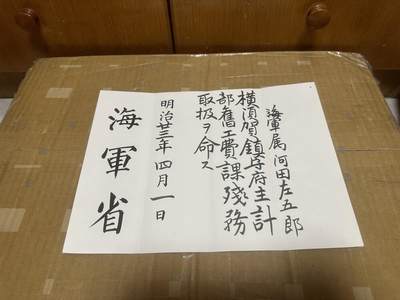 海軍属 河田左五郎
横須賀鎮守府主計
部舊工費課残務
取扱ヲ命ス
明治廿三年四月一日
海軍省